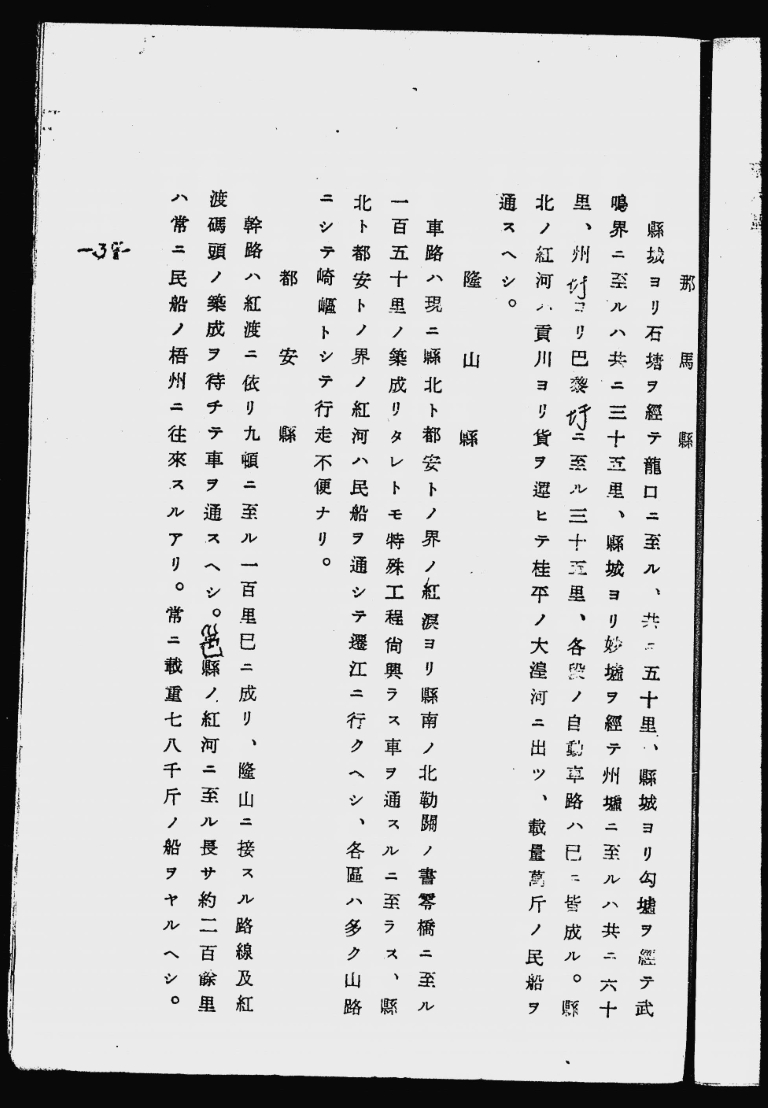 那馬縣
縣城ヨリ石塘ヲ經テ龍口ニ至ル、共ニ五十里、縣城ヨリ勾墟ヲ經テ武
鳴界ニ至ルハ共ニ三十五里、縣城ヨリ妙墟ヲ經テ州墟ニ至ルハ共ニ六十
里、州圩ヨリ巴黎圩ニ至ル三十五里、各段ノ自動車路ハ已ニ皆成ル。縣
北ノ紅河ハ貢川ヨリ貨ヲ運ヒテ桂平ノ大湟河ニ出ツ、載量萬斤ノ民船ヲ
通スヘシ。
隆山縣
車路ハ現ニ縣北ト都安トノ界ノ紅渡ヨリ縣南ノ北勒關ノ書零橋ニ至ル
一百五十里ノ築成リタレトモ特殊工程尙興ラス車ヲ通スルニ至ラス、縣
北ト都安トノ界ノ紅河ハ民船ヲ通シテ遷江ニ行クヘシ、各區ハ多ク山路
ニシテ崎嶇トシテ行走不便ナリ。
都安縣
幹路ハ紅渡ニ依リ九頓ニ至ル一百里巳ニ成リ、隆山ニ接スル路線及紅
渡碼頭ノ築成ヲ待チテ車ヲ通スヘシ。縣ノ紅河ニ至ル長サ約二百餘里
ハ常ニ民船ノ梧州ニ往來スルアリ。常ニ載重七八千斤ノ船ヲヤルヘシ。